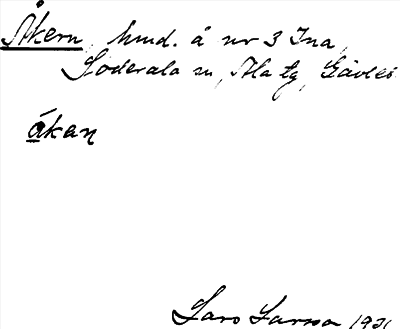 Åkern, hmd. å nr 3 Ina,
Söderala sn, Ala tg, Gävleb
åkan
Lars Larsson 1931